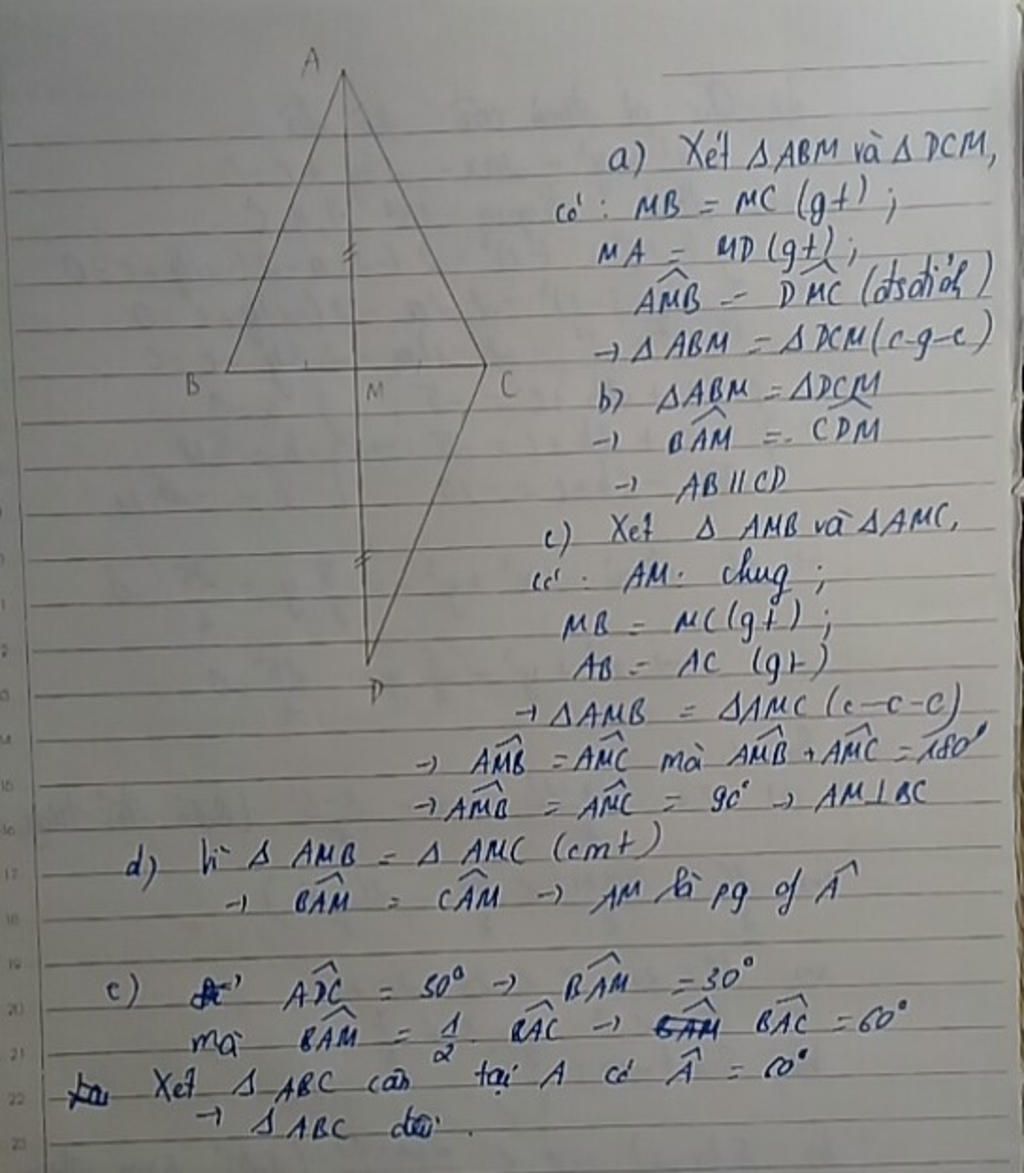 A
B
M
C
D
a) Xét ΔABM và ΔDCM,
có: MB = MC (gt);
MA = MD (gt);
\widehat{AMB} = \widehat{DMC} (đđ)
→ ΔABM = ΔDCM (c-g-c)
b) ΔABM = ΔDCM
→ \widehat{BAM} = \widehat{CDM}
→ AB // CD
c) Xét Δ AMB và ΔAMC,
có: AM: chug;
MB = MC (gt);
AB = AC (gt)
→ ΔAMB = ΔAMC (c-c-c)
→ \widehat{AMB} = \widehat{AMC} mà \widehat{AMB} + \widehat{AMC} = 180°
→ \widehat{AMB} = \widehat{AMC} = 90° → AM ⊥ BC
d) Vì Δ AMB = Δ AMC (cmt)
→ \widehat{BAM} = \widehat{CAM} → AM là pg of \widehat{A}
e) \widehat{ADC} = 30° → \widehat{BAM} = 30°
mà \widehat{BAM} = 1/2 \widehat{BAC} → \widehat{BAC} = 60°
Xét Δ ABC cân tại A có \widehat{A} = 60°
→ Δ ABC đều.
12
13
14
15
16
17
18
19
20
21
22
23